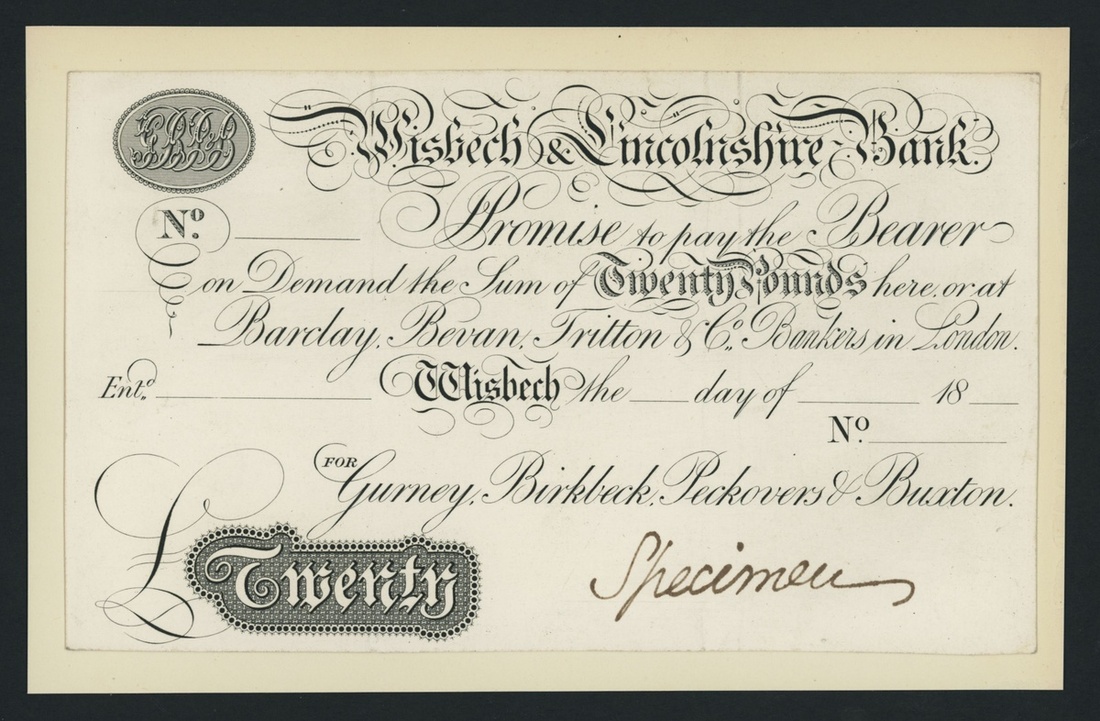 Wisbech & Lincolnshire Bank.
Nº. I Promise to pay the Bearer
on Demand the Sum of Twenty Pounds here, or at
Barclay, Bevan, Tritton & Cº. Bankers in London.
Entº. Wisbech the day of 18
Nº
FOR Gurney, Birkbeck, Peckovers & Buxton.
£ Twenty
Specimen